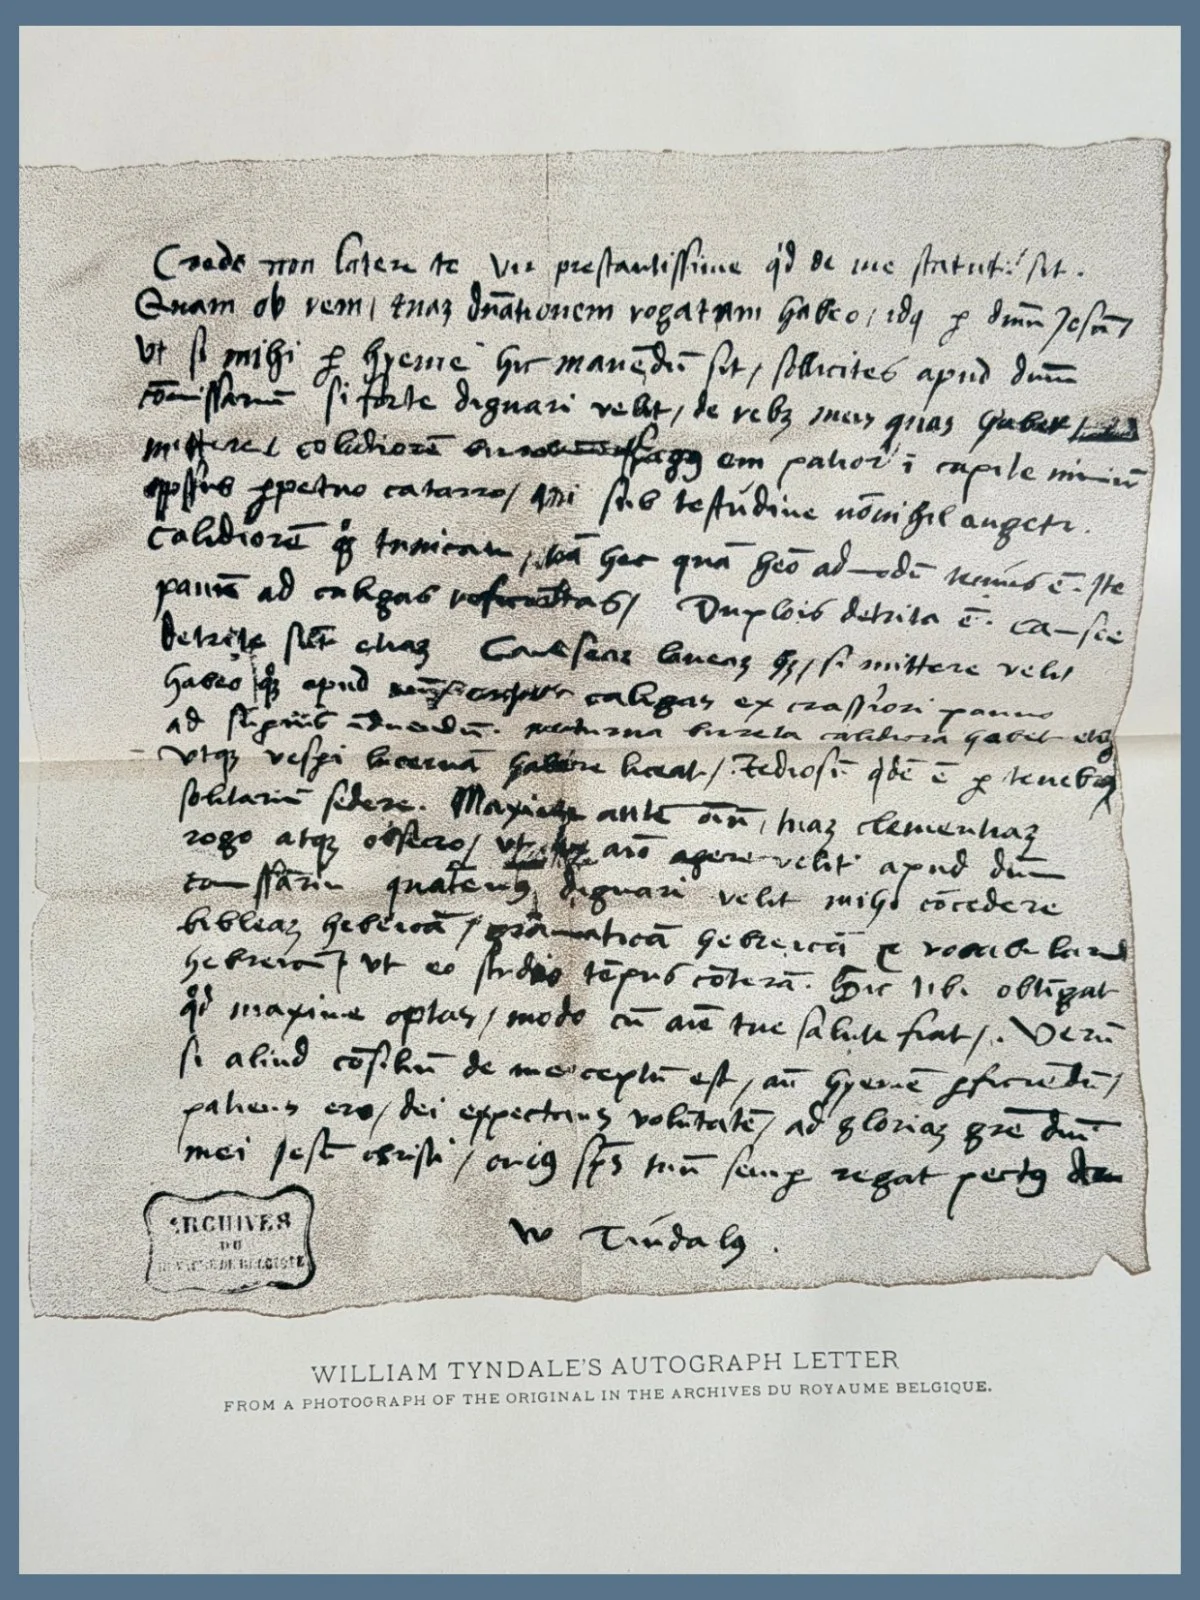 Credo non latere te vir prestantissime qd de me statutū sit.
Quam ob rem / tuaz dn̄ationem rogatam habeo / idq p dmn̄ Jesū /
Vt si mihi p hyemē hic manēdū sit / sollicites apud dmn̄
cōmissariū si forte dignari velit / de rebz meis quas habet
mittere / calidiorē frigus em patior ī capite nimiū
oppssus ppetuo catarro / qui sub testudine nōnihil augetr.
Calidiorē qz tunicam / nā hec quā heō admodū tenuis ē. Ite
pannū ad caligas reficiendas / Duplois detrita ē. camisee
detrite sūt etiaz Camiseaz laneaz hz / si mittere velit
habeo qz apud caligas ex crassiori panno
ad supius īduendū. nocturna birreta calidiora habet etiā
Vtqz vespi lucernā habere liceat / Tediosū qdē ē p tenebras
solitariū sedere. Maxime autē oīm / tuaz clementiaz
rogo atqz obsecro / ut agere velit apud dmn̄
comissariū quatenus dignari velit mihi cōcedere
bibleaz hebreicā / grāmaticā hebreicā et vocabulariū
hebreicū / ut eo studio tēpus cōterā. Sic tibi obtīgat
qd maxime optas / modo cū aīe tue salute fiat /. Verū
si aliud cōsiliū de me ceptū est / an̄ hyemē pficiēdū /
patiens ero / dei expectans volūtatē / ad gloriaz grē dnī
mei Jesu christi / cuius sps tuū semp regat pectus Amen
W Tindalus.
ARCHIVES
DU
ROYAUME DE BELGIQUE
WILLIAM TYNDALE'S AUTOGRAPH LETTER
FROM A PHOTOGRAPH OF THE ORIGINAL IN THE ARCHIVES DU ROYAUME BELGIQUE.